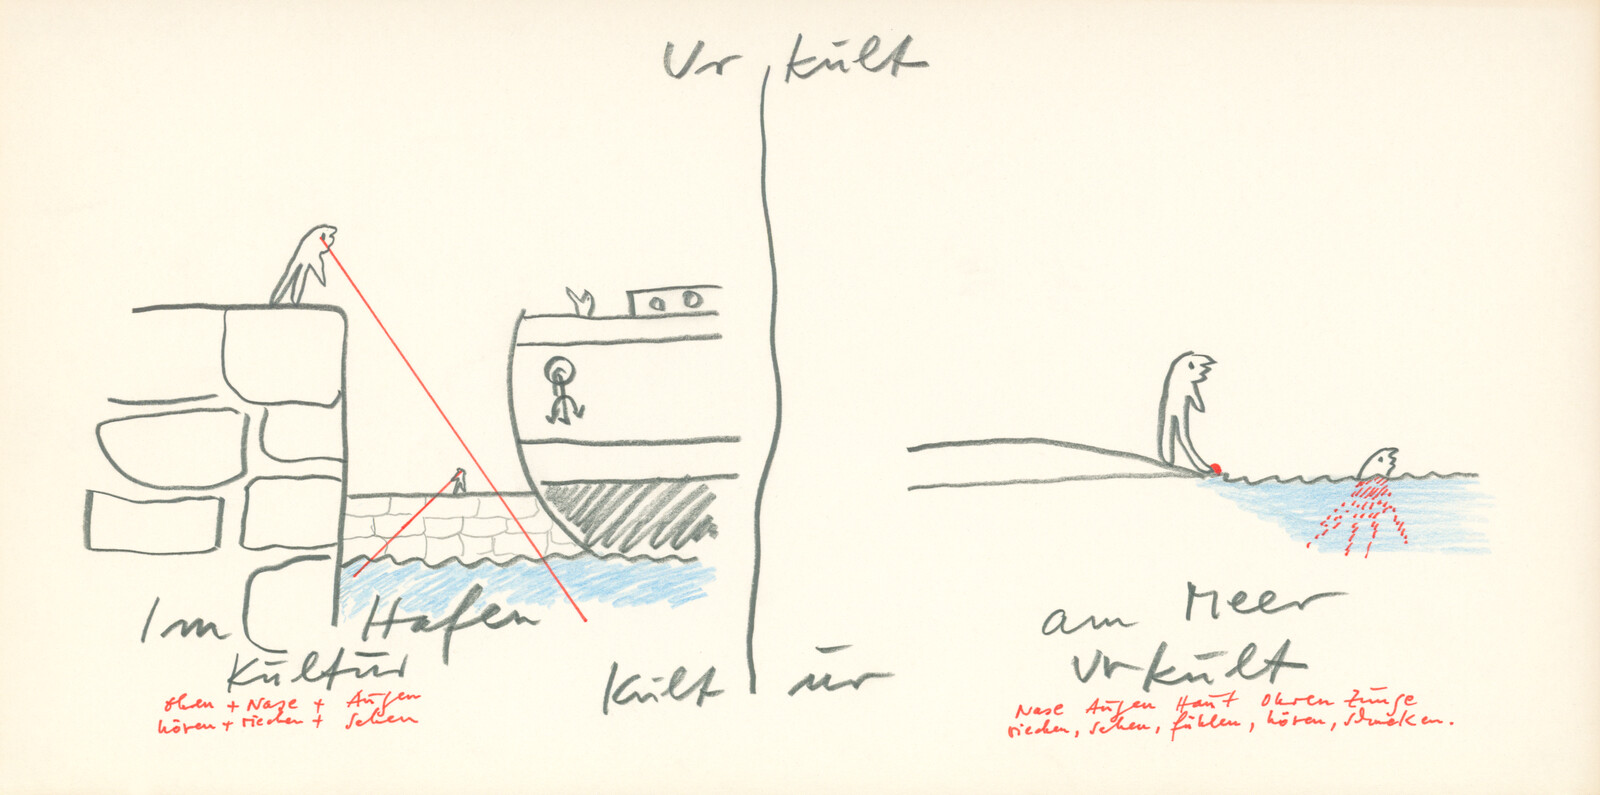 Ur kult
Im Hafen
Kultur
Ohren + Nase + Augen
hören + riechen + sehen
Kult ur
am Meer
Urkult
Nase Augen Haut Ohren Zunge
riechen, sehen, fühlen, hören, schmecken.